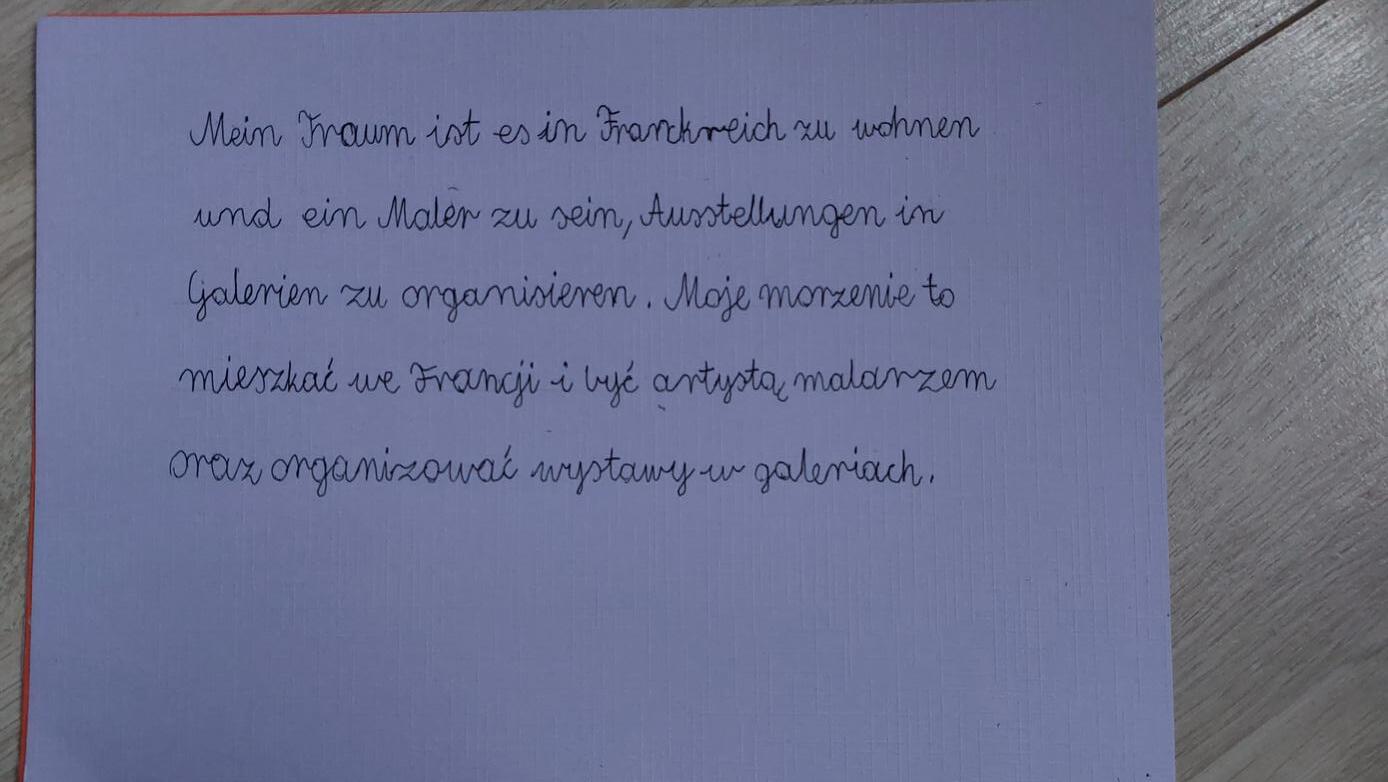 Mein Traum ist es in Franckreich zu wohnen
und ein Maler zu sein, Ausstellungen in
Galerien zu organisieren. Moje morzenie to
mieszkać we Francji i być artystą malarzem
oraz organizować wystawy w galeriach.